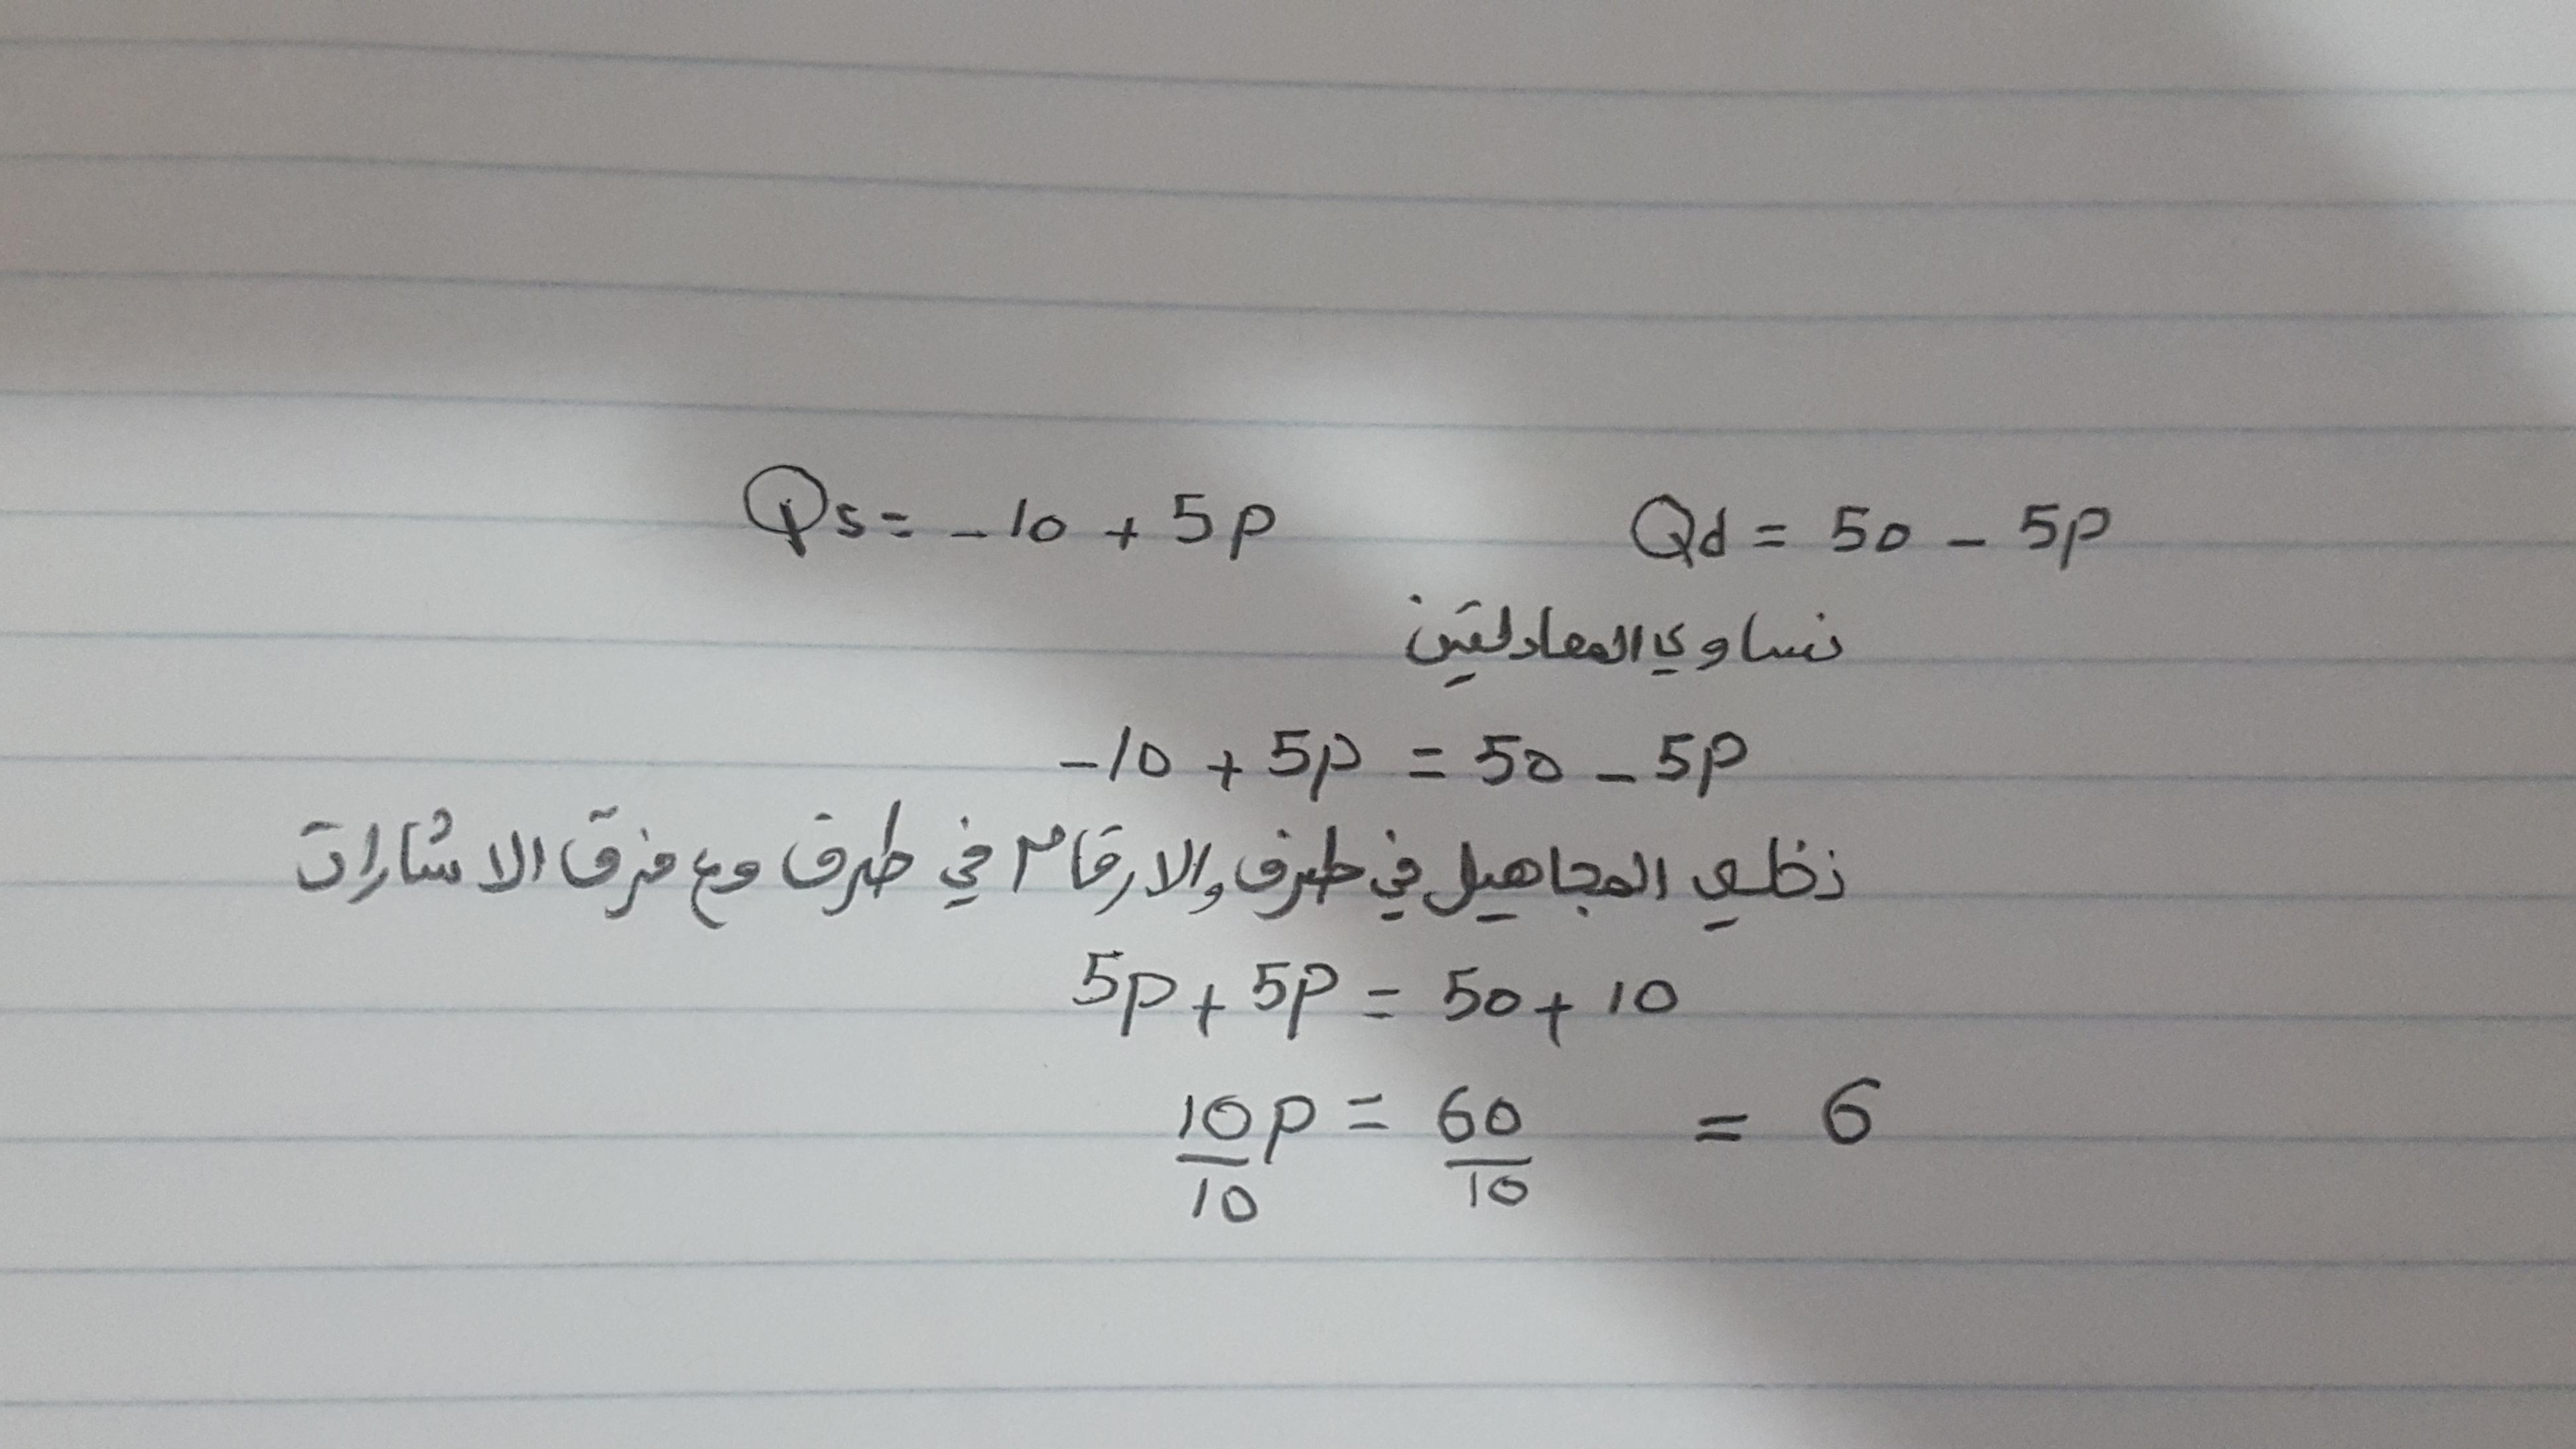 Qs = -10 + 5P    Qd = 50 - 5P
نساوي المعادلتين
-10 + 5P = 50 - 5P
نخلي المجاهيل في طرف والارقام في طرف مع فرق الاشارات
5P + 5P = 50 + 10
10P/10 = 60/10 = 6